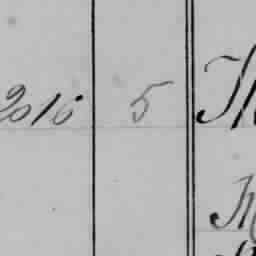 2016 5 Th
M